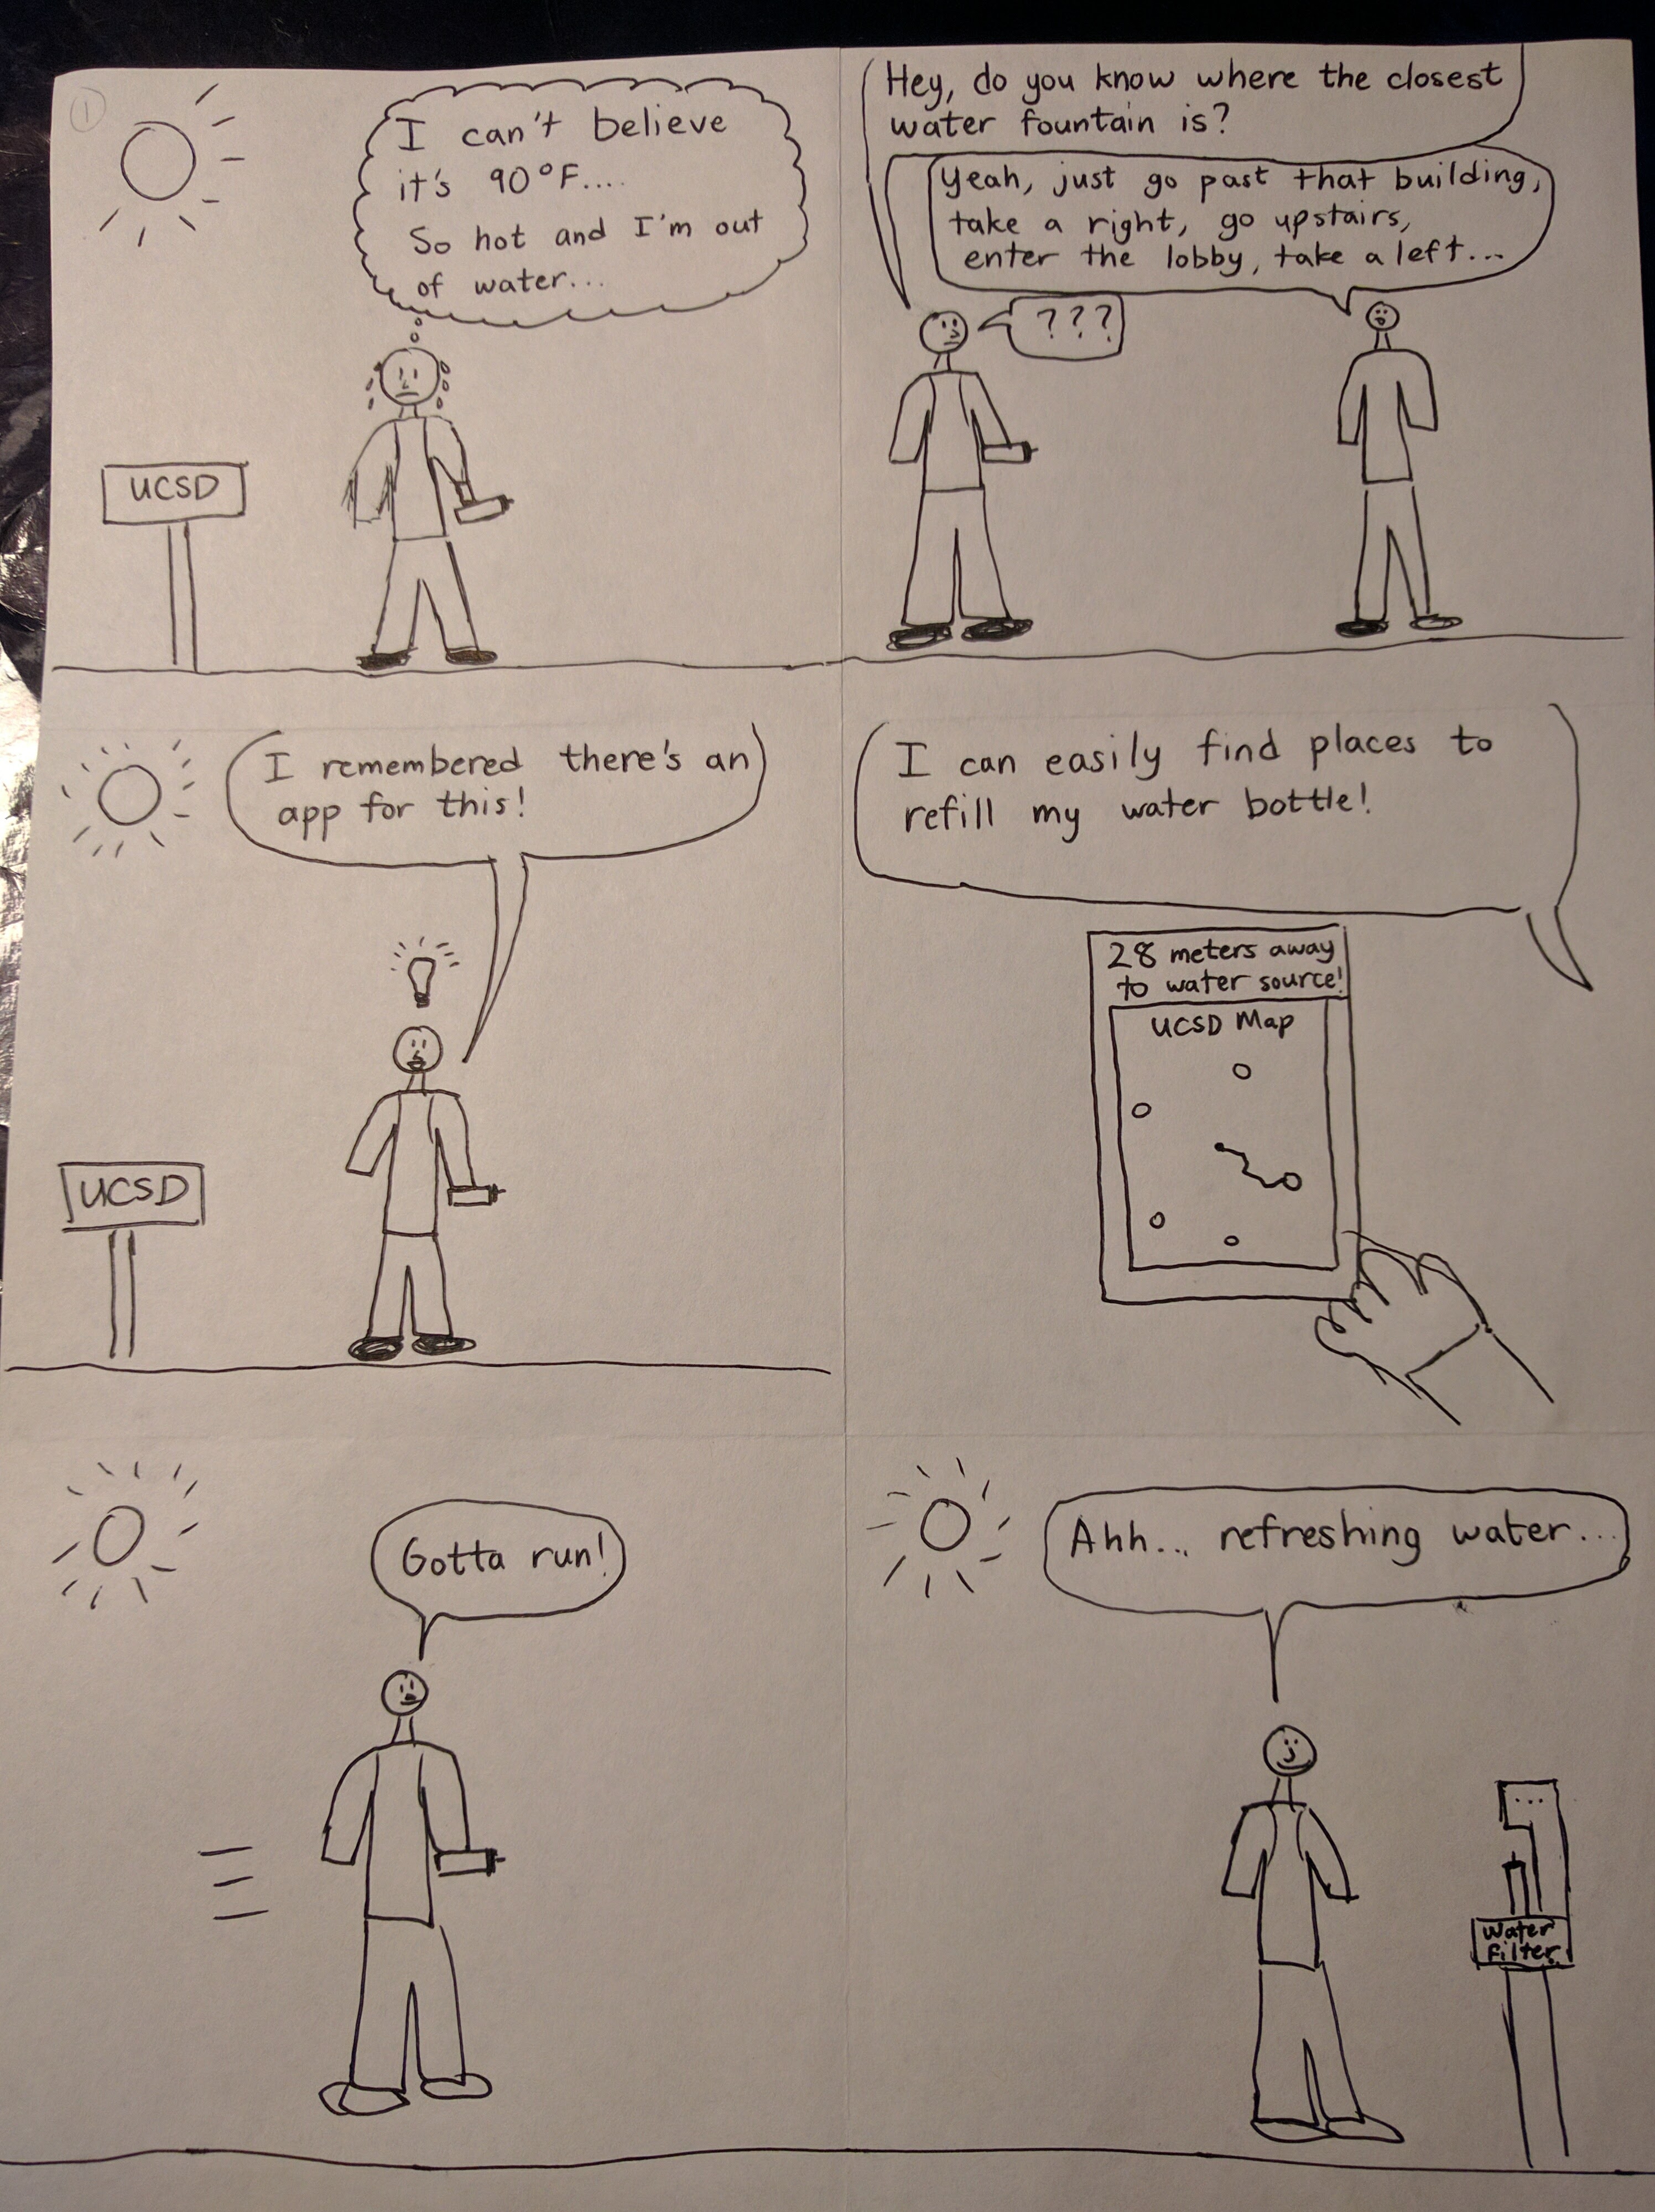 1
I can't believe
it's 90°F....
So hot and I'm out
of water...
UCSD
Hey, do you know where the closest
water fountain is?
Yeah, just go past that building,
take a right, go upstairs,
enter the lobby, take a left...
???
I remembered there's an
app for this!
UCSD
I can easily find places to
refill my water bottle!
28 meters away
to water source!
UCSD Map
Gotta run!
Ahh... refreshing water...
...
Water
Filter